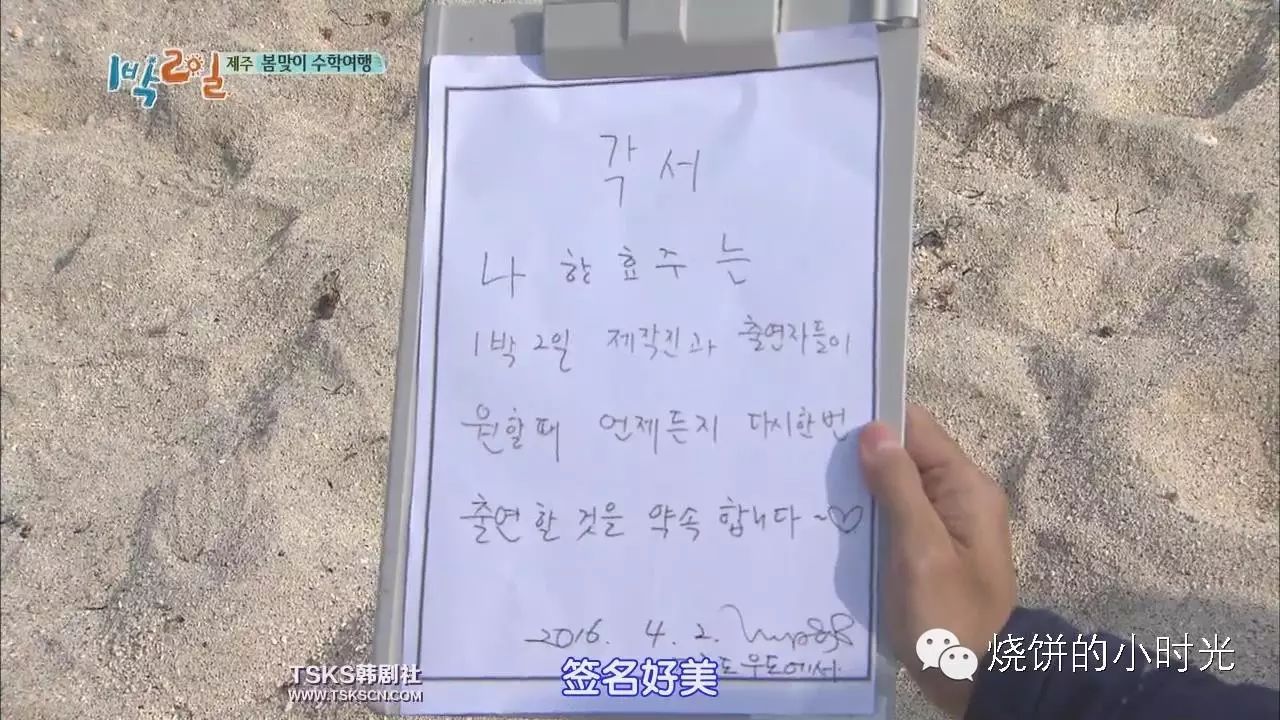 1박2일 제주 봄맞이 수학여행
각서
나 한효주는
1박 2일 제작진과 출연자들이
원할때 언제든지 다시한번
출연할 것을 약속 합니다~♡
2016. 4. 2.
우도에서.
签名好美
TSKS韩剧社
WWW.TSKSCN.COM
烧饼的小时光